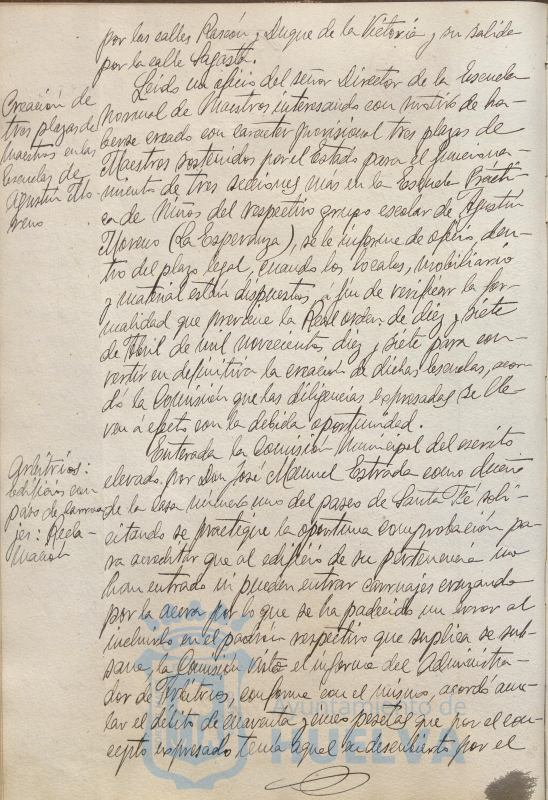 por las calles Rascón y Duque de la Victoria y su salida
por la calle Sagasta.
Creación de
tres plazas de
Maestros en las
Escuelas de
Agustín Mo-
reno
Leído un oficio del señor Director de la Escuela
Normal de Maestros interesando con motivo de ha-
berse creado con carácter provisional tres plazas de
Maestros sostenidos por el Estado para el funciona-
miento de tres secciones más en la Escuela Prácti-
ca de Niños del respectivo grupo escolar de Agustín
Moreno (La Esperanza), se le informe de oficio, den-
tro del plazo legal, cuando los locales, mobiliario
y material estén dispuestos, á fin de verificar la for-
malidad que previene la Real orden de diez y siete
de Abril de mil novecientos diez y siete para con-
vertir en definitiva la creación de dichas Escuelas, acor-
dó la Comisión que las diligencias expresadas se lle-
ven á efecto con la debida oportunidad.
Arbitrios:
Edificios con
paso de carrua-
jes: Recla-
mación
Enterada la Comisión Municipal del escrito
elevado por Don José Manuel Estrada como dueño
de la casa número uno del paseo de Santa Fe soli-
citando se practique la oportuna comprobación pa-
ra acreditar que al edificio de su pertenencia no
han entrado ni pueden entrar carruajes cruzando
por la acera por lo que se ha padecido un error al
incluirlo en el padrón respectivo que suplica se sub-
sane, la Comisión visto el informe del Administra-
dor de Arbitrios, conforme con el mismo, acordó anu-
lar el débito de cuarenta y cinco pesetas que por el con-
cepto expresado tenía aquel en descubierto por el
Ayuntamiento de
HUELVA